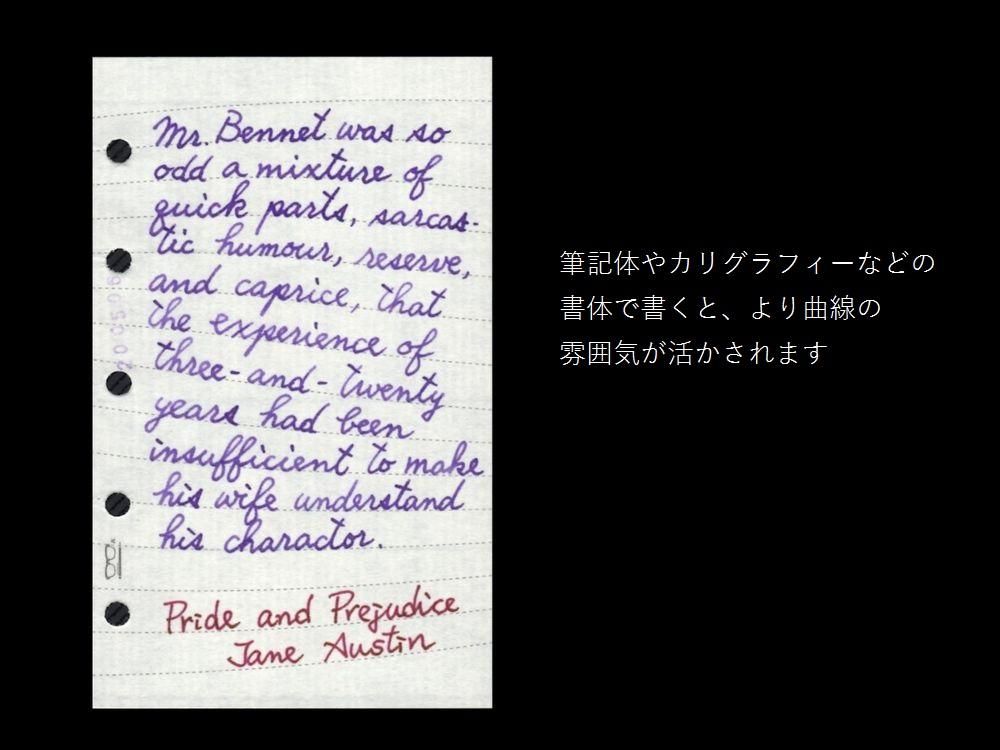 Mr. Bennet was so
odd a mixture of
quick parts, sarcas-
tic humour, reserve,
and caprice, that
the experience of
three-and-twenty
years had been
insufficient to make
his wife understand
his charactor.
Pride and Prejudice
Jane Austin
筆記体やカリグラフィーなどの
書体で書くと、より曲線の
雰囲気が活かされます